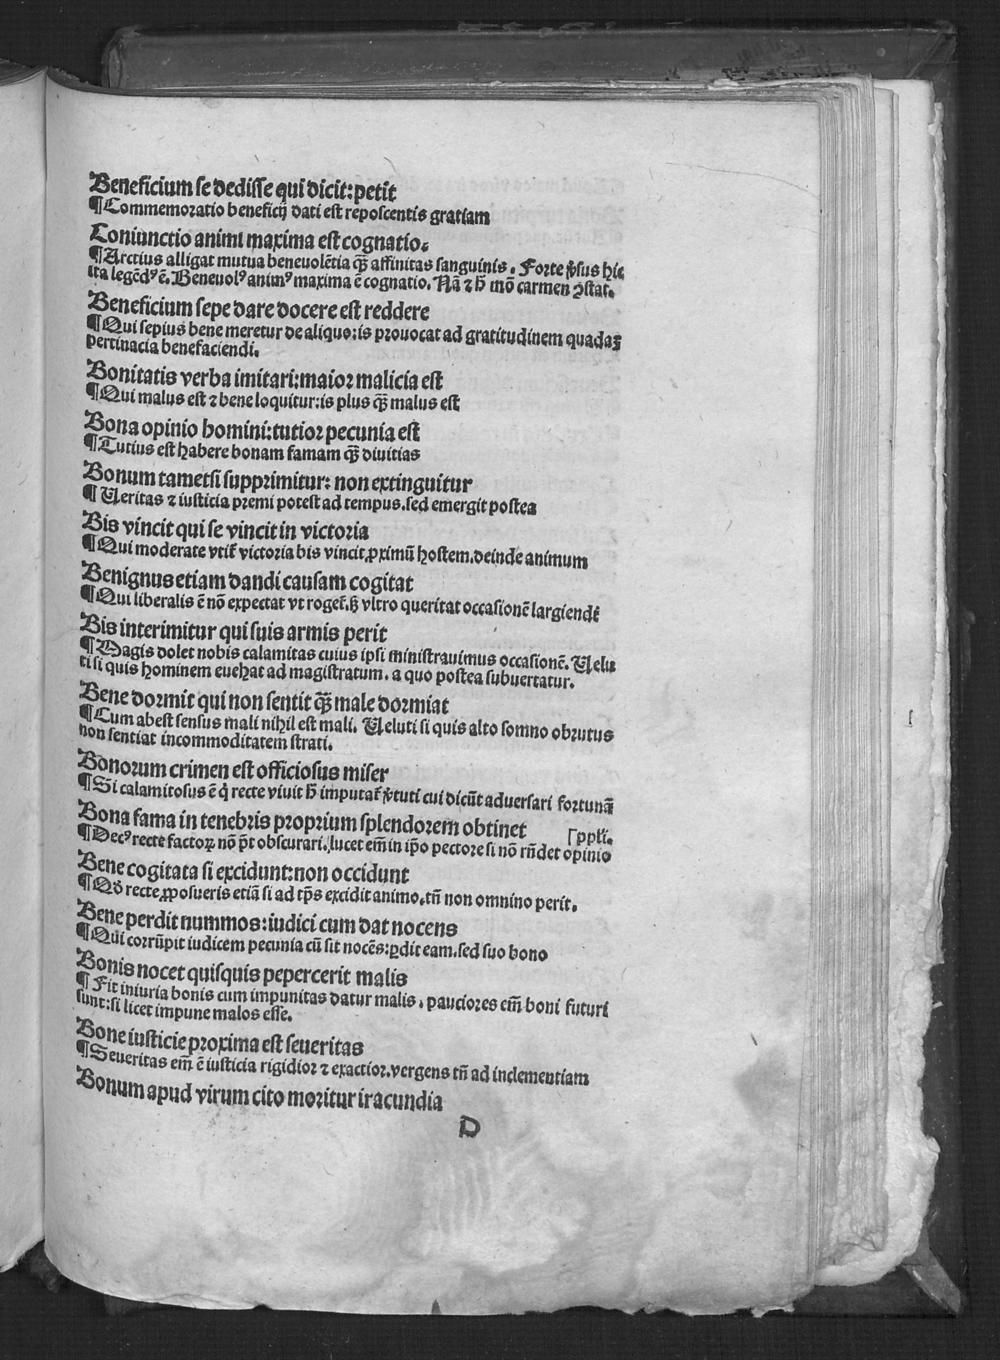 Beneficium se dedisse qui dicit: petit
¶ Commemoratio beneficij dati est reposcentis gratiam
Coniunctio animi maxima est cognatio.
¶ Arctius alligat mutua beneuolētia q̄ʒ affinitas sanguinis. Forte ṽsus hic
ita legēdꝰ ē. Beneuolꝰ animꝰ maxima ē cognatio. Nā ⁊ h̄ mō carmen ꝯstat.
Beneficium sepe dare docere est reddere
¶ Qui sepius bene meretur de aliquo: is prouocat ad gratitudinem quadaʒ
pertinacia benefaciendi.
Bonitatis verba imitari: maior malicia est
¶ Qui malus est ⁊ bene loquitur: is plus q̄ʒ malus est
Bona opinio homini: tutior pecunia est
¶ Tutius est habere bonam famam q̄ʒ diuitias
Bonum tametsi supprimitur: non extinguitur
¶ Ueritas ⁊ iusticia premi potest ad tempus. sed emergit postea
Bis vincit qui se vincit in victoria
¶ Qui moderate vtit᷑ victoria bis vincit, ꝓximū hostem. deinde animum
Benignus etiam dandi causam cogitat
¶ Qui liberalis ē nō expectat vt roget᷑. sʒ vltro queritat occasionē largiendi
Bis interimitur qui suis armis perit
¶ Magis dolet nobis calamitas cuius ipsi ministrauimus occasionē. Uelu
ti si quis hominem euehat ad magistratum. a quo postea subuertatur.
Bene dormit qui non sentit q̄ʒ male dormiat
¶ Cum abest sensus mali nihil est mali. Ueluti si quis alto somno obrutus
non sentiat incommoditatem strati.
Bonorum crimen est officiosus miser
¶ Si calamitosus ē q̇ recte viuit h̄ imputat᷑ ṽtuti cui dicūt aduersari fortunā
Bona fama in tenebris proprium splendorem obtinet
[ppli.
¶ Decꝰ recte factoꝝ nō pōt obscurari. lucet em̄ in ip̄o pectore si nō rn̄det opinio
Bene cogitata si excidunt: non occidunt
¶ Qd̄ recte ꝓposueris etiā si ad tp̄s excidit animo. tn̄ non omnino perit.
Bene perdit nummos: iudici cum dat nocens
¶ Qui corrūpit iudicem pecunia cū sit nocēs: ꝑdit eam. sed suo bono
Bonis nocet quisquis pepercerit malis
¶ Fit iniuria bonis cum impunitas datur malis. pauciores em̄ boni futuri
sunt: si licet impune malos esse.
Bone iusticie proxima est seueritas
¶ Seueritas em̄ ē iusticia rigidior ⁊ exactior. vergens tn̄ ad inclementiam
Bonum apud virum cito moritur iracundia
D